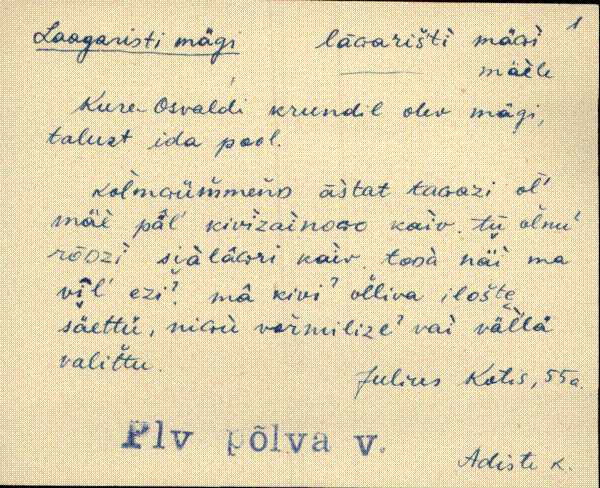 Laagaristi mägi   lāGarišti mäGi   1
mäele
Kure-Osvaldi krundil olev mägi,
talust ida pool.
kolmGümmenD āstat taGazi ol'
mäe pǟl' kivizainoGo kaiv. tū̬ olnu'
rōDzi siälāGri kaiv. toDa näi ma
vīl' ezi?. mā kivi? olliva iloste
säettü, niGu vormilize? vai vällä
valittu.
Julius Kotis, 55 a.
Plv põlva v.
Adiste k.